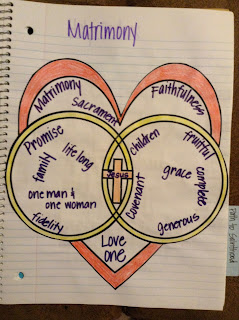 Matrimony
Matrimony
Sacrament
Faithfulness
Promise
family
life long
one man &
one woman
fidelity
Jesus
Covenant
children
fruitful
grace
complete
generous
Love
one
Path to Sainthood